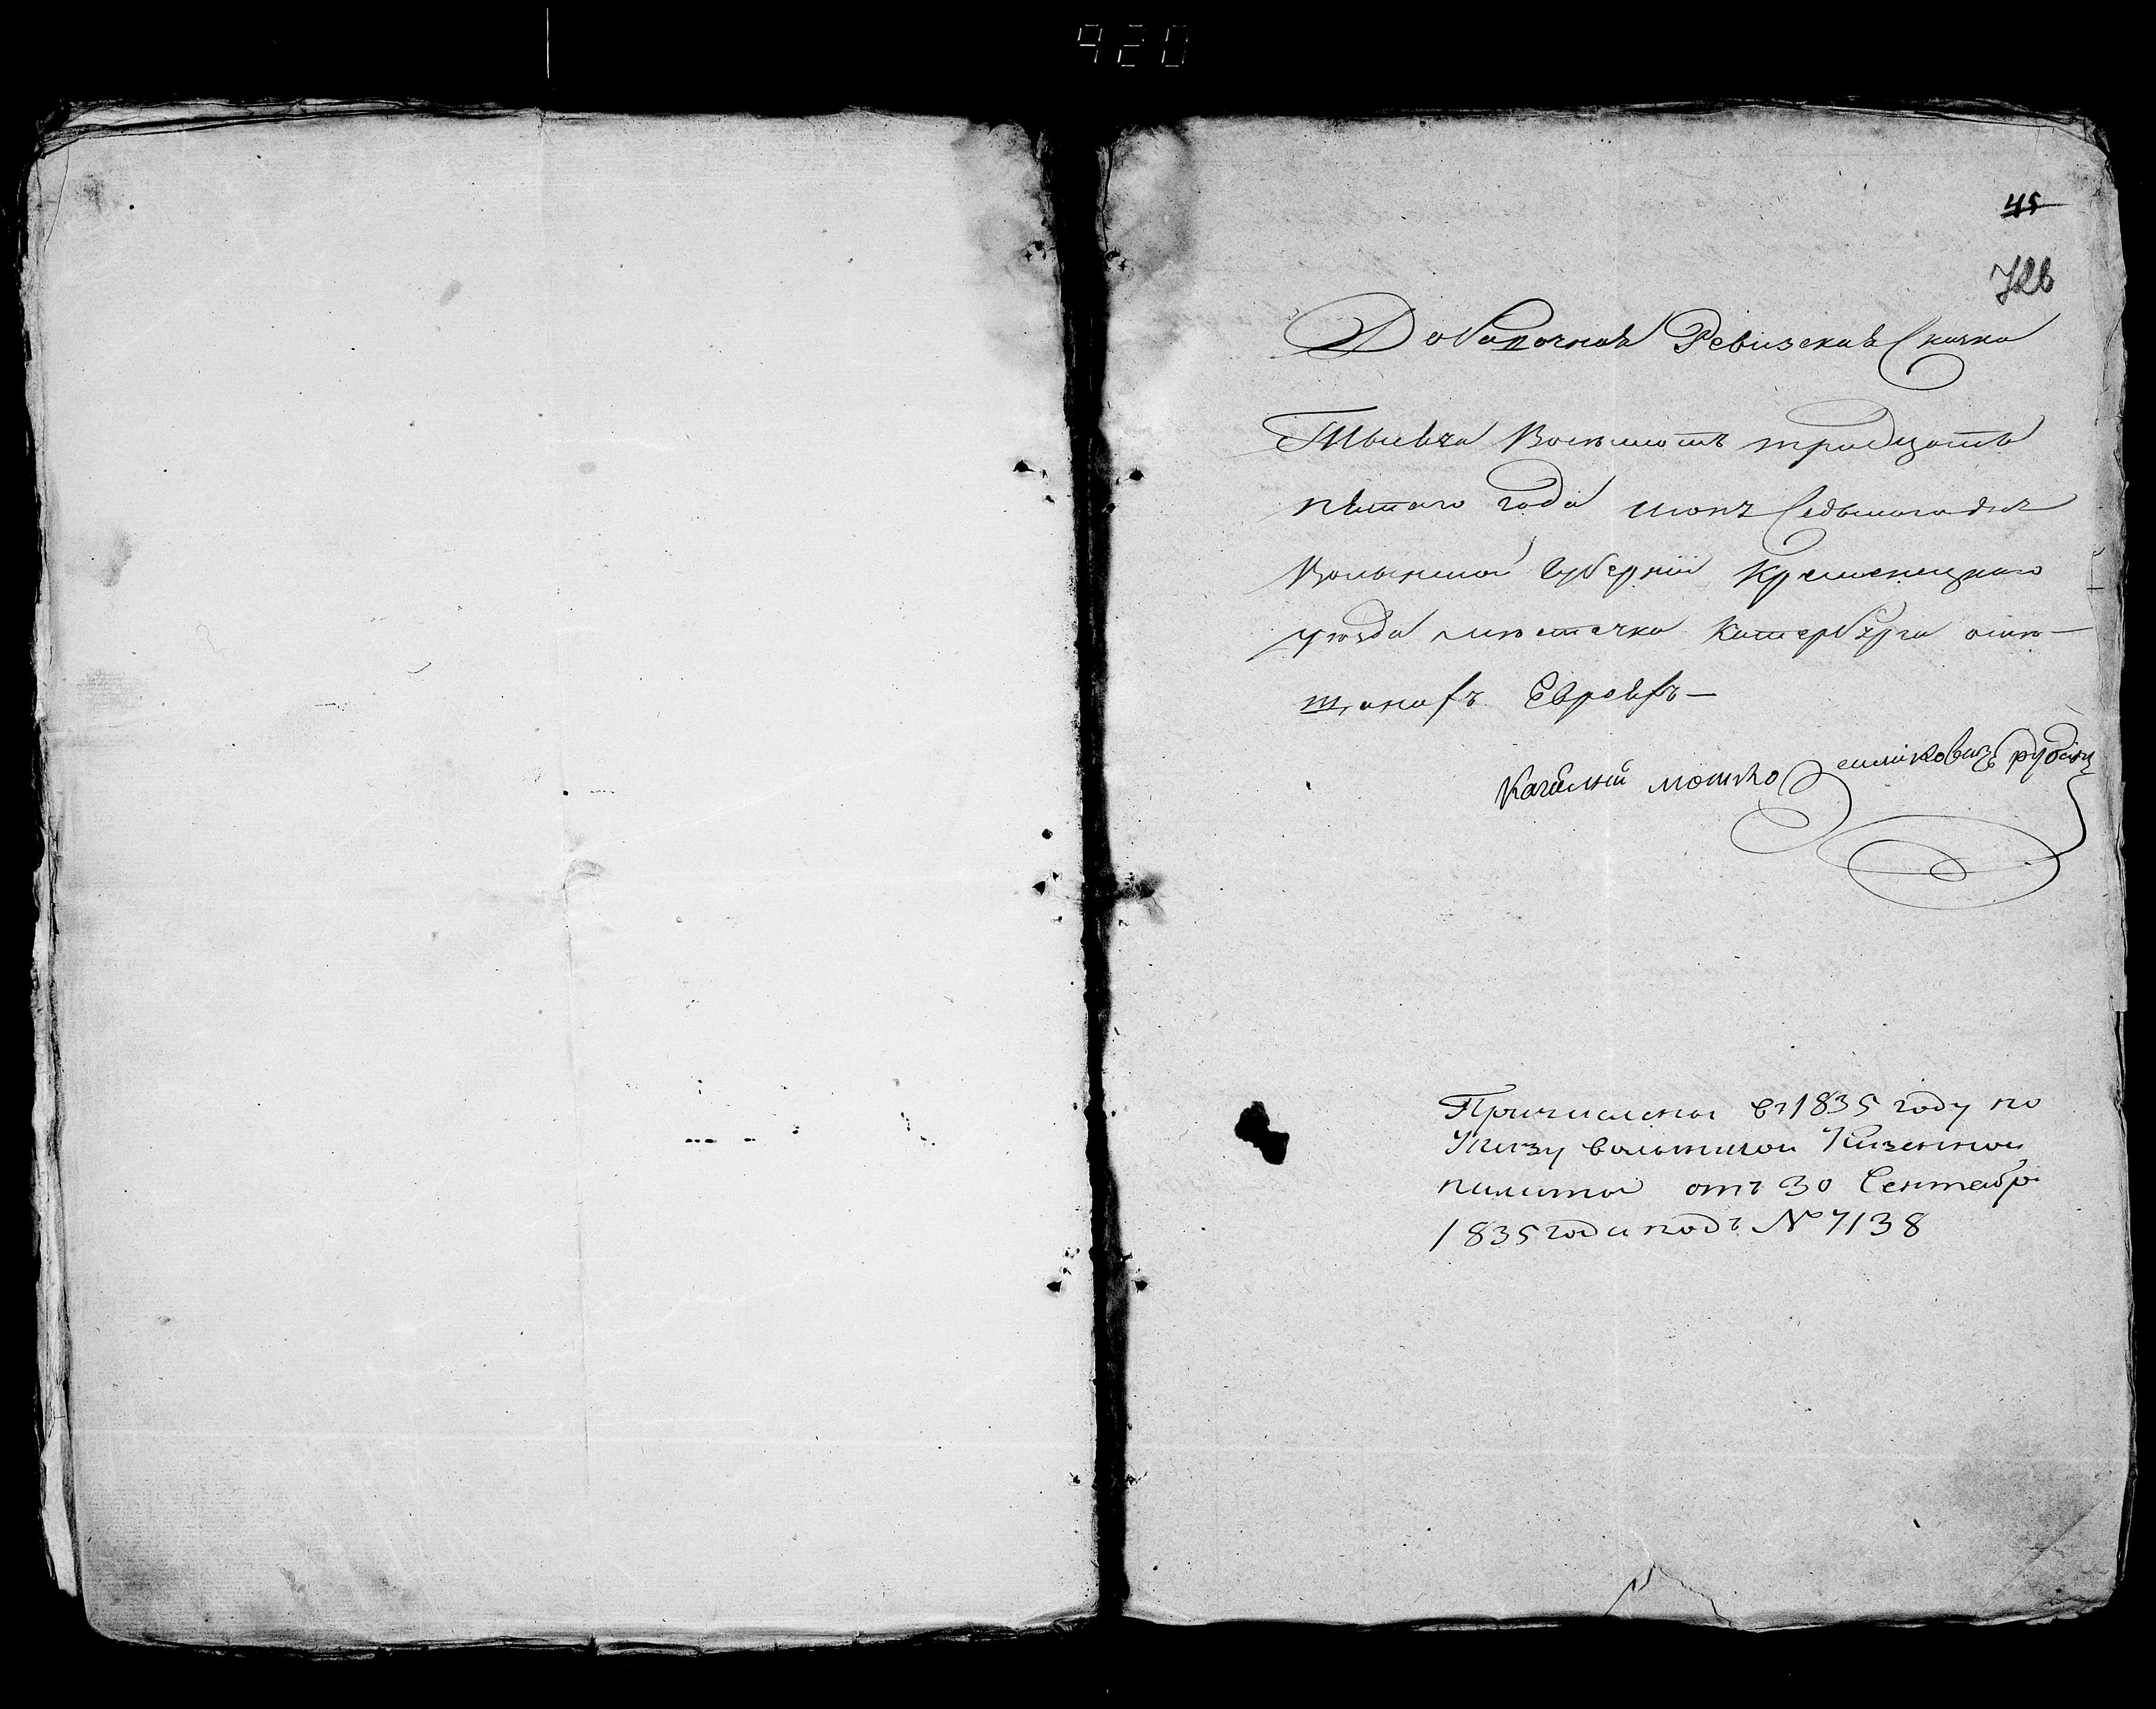 420
45
726
Добавочная Ревизская Сказка
Тысеча Восемьсотъ тридцать
пятаго года июня Седьмаго дня
Волынской Губернии Кременецкаго
уезда местечка Катербурга оме-
щанахъ Евреяхъ —
Кагалный мошко рубинъ
Причислены въ 1835 году по
Указу волынской Казенной
палаты отъ 30 Сентября
1835 года подъ № 7138